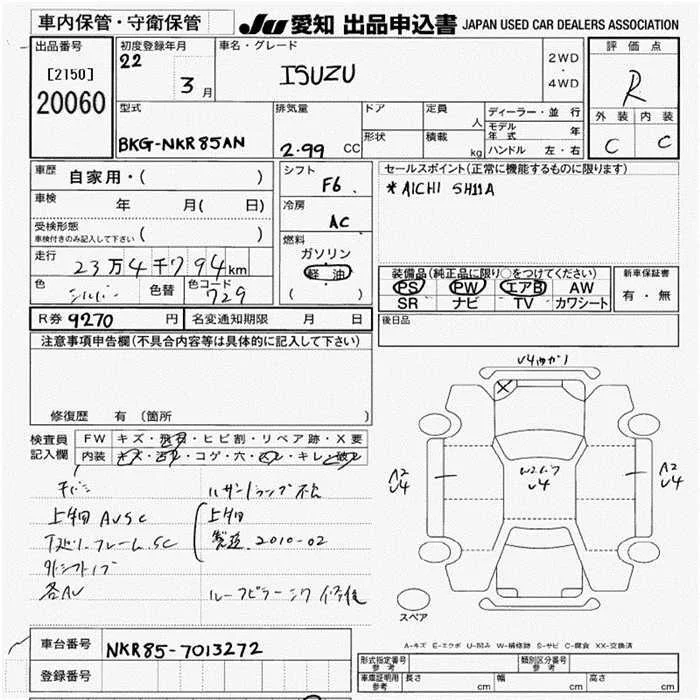 車内保管・守衛保管
JU 愛知 出品申込書 JAPAN USED CAR DEALERS ASSOCIATION
出品番号
[2150]
20060
初度登録年月
22
3 月
車名・グレード
ISUZU
2WD
・
4WD
評価点
R
外装 内装
C C
型式
BKG-NKR85AN
排気量
2.99 CC
ドア
形状
定員
人
積載
kg
ディーラー・並行
モデル年式 年
ハンドル 左・右
車歴 自家用・( )
車検 年 月( 日)
受検形態
車検付きのみ記入して下さい ( )
走行 23万4千794km
色 シルバー 色替 色コード 729
シフト
F6
冷房
AC
燃料
ガソリン
軽油
( )
セールスポイント(正常に機能するものに限ります)
*AICHI SH11A
装備品(純正品に限り○をつけてください)
PS PW エアB AW
SR ナビ TV カワシート
新車保証書
有・無
後日品
R券 9270 円 名変通知期限 月 日
注意事項申告欄(不具合内容等は具体的に記入して下さい)
修復歴 有(箇所 )
検査員
記入欄
FW キズ・飛石・ヒビ割・リペア跡・X要
内装 キズ・汚れ・コゲ・穴・ヌレ・キレ・破レ
上物 AVSC
下廻り、フレームSC
各AU
上物
製造 2010-02
U4
A2
U4
U4
A2
U4
スペア
A-キズ E-エクボ U-凹み W-補修跡 S-サビ C-腐食 XX-交換済
車台番号 NKR85-7013272
登録番号
形式指定番号 参考 類別区分番号 参考
車庫証明用 参考 長さ cm 幅 cm 高さ cm